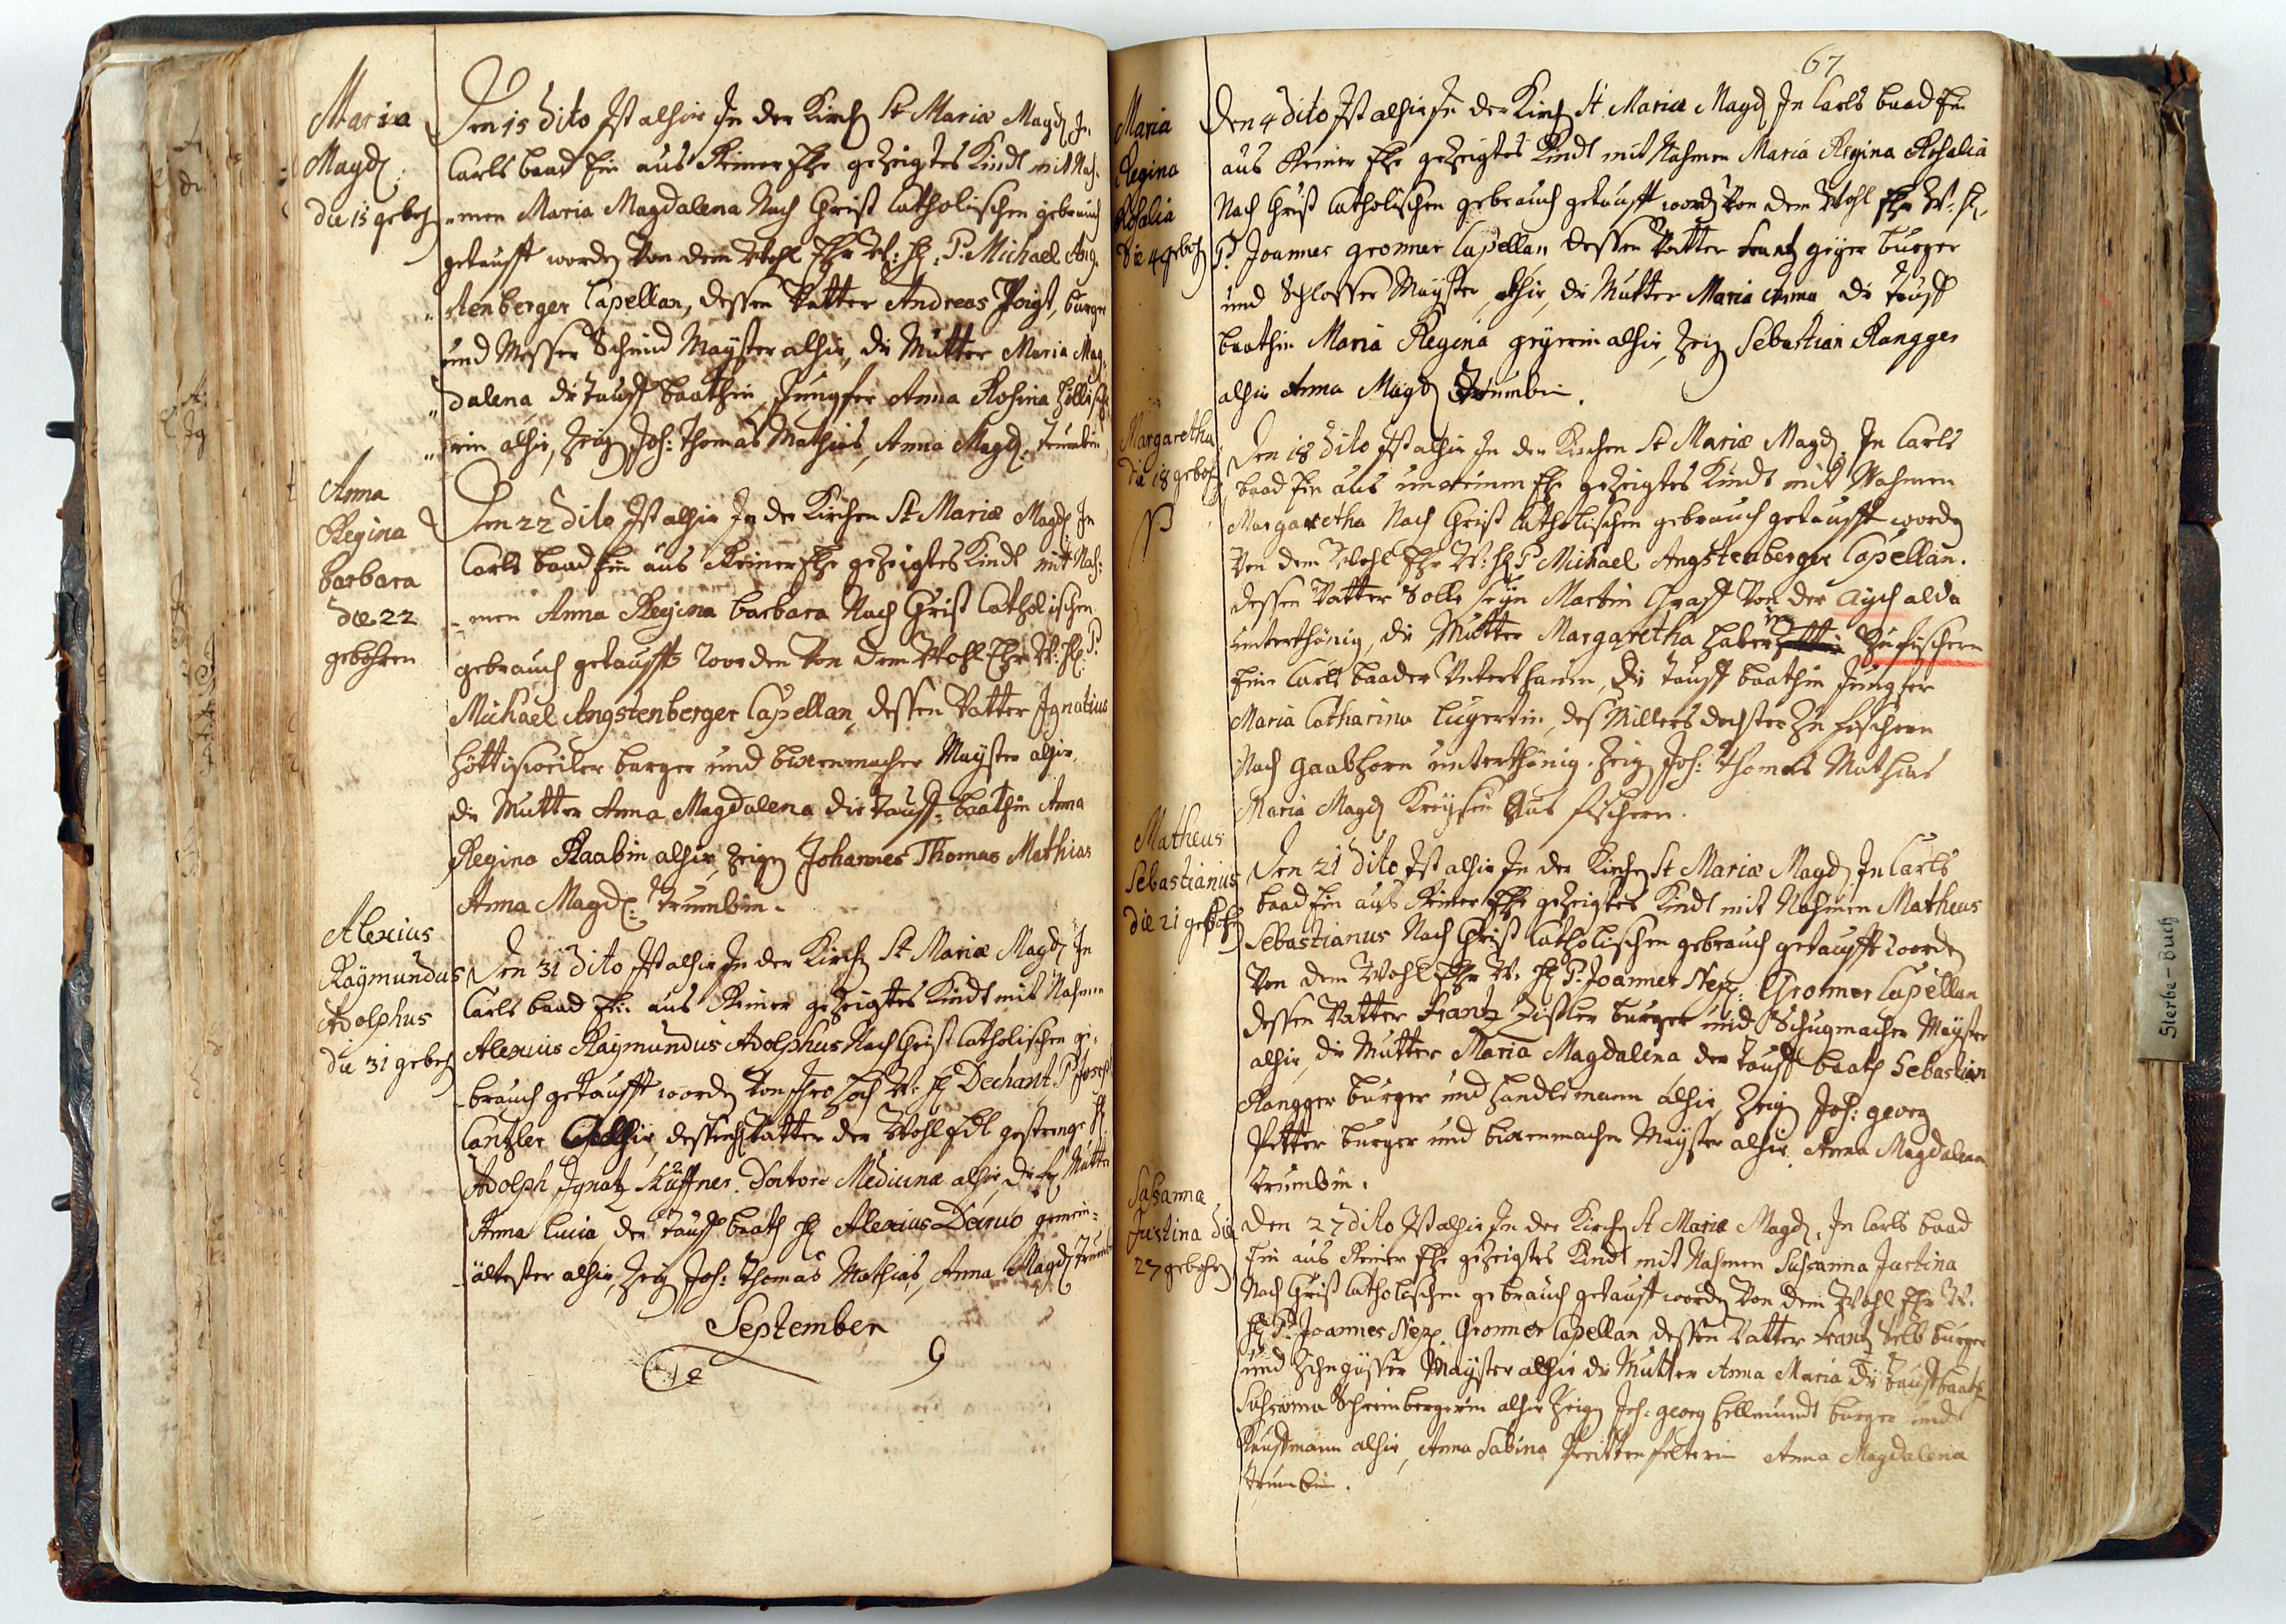 Maria
Magd:
die 15 geboh
Den 15 dito Ist alhir In der Kirch St Mariæ Magd: In
Carls baad Ein aus Reiner Ehe gezeigtes Kindt mit Nah-
-men Maria Magdalena Nach Christ Catholischen gebrauch
getaufft worden Von dem Wohl Ehr W: H: P. Michael Ang-
-stenberger Capellan, dessen Vatter Andreas Voigt, burger
und Messer Schmid Mayster alhir, die Mutter Maria Mag-
-dalena die tauff baathin Jungfer Anna Rosina
-rin alhir, Zeig Joh: Thomas Mathias, Anna Magd: trumbin
Anna
Regina
barbara
die 22
gebohren
Den 22 dito Ist alhir In der Kirchen St Mariæ Magd In
Carls baad Ein aus Reiner Ehe gezeigtes Kindt mit Nah-
-men Anna Regina barbara Nach Christ Catholischen
gebrauch getaufft worden Von dem Wohl Ehr W: H: P.
Michael Angstenberger Capellan, dessen Vatter Ignatius
Höttisweiler burger und bixenmacher Mayster alhir,
die Mutter Anna Magdalena die tauff-baathin Anna
Regina Raabin alhir, Zeigen Johannes Thomas Mathias
Anna Magd: trumbin.
Alexius
Raymundus
Adolphus
die 31 geboh
Den 31 dito Ist alhir In der Kirch St Mariæ Magd In
Carls baad Ein aus Reiner gezeigtes Kindt mit Nahmen
Alexius Raymundus Adolphus Nach Christ Catholischen ge-
-brauch getaufft worden Von Ihro Hoch W: H: Dechant P Joseph
Cantzler alhir, dessen Vatter der Wohl Edl gestrenge H.
Adolph Ignatz Küffner Doctore Medicinæ alhir, die Fr Mutter
Anna Lucia, der tauff baath H: Alexius Deiruo gemein-
-ältester alhir, Zeig Joh: Thomas Mathias, Anna Magd trumbin
September
9
67
Maria
Regina
Rosalia
die 4 geboh
Den 4 dito Ist alhir In der Kirch St. Mariæ Magd In Carls baad Ein
aus Reiner Ehe gezeigtes Kindt mit Nahmen Maria Regina Rosalia
Nach Christ Catholischen gebrauch getaufft worden Von dem Wohl Ehr W: H:
P: Joannes Gronner Capellan, dessen Vatter Frantz geyer burger
und Schlosser Mayster, alhir, die Mutter Maria Anna, die tauff
baathin Maria Regina geyerin alhir, Zeig Sebastian Rangger
alhir Anna Magd Trumbin.
Margaretha
die 18 geboh
Den 18 dito Ist alhir In der Kirchen St Mariæ Magd. In Carls
baad Ein aus unreinen Ehe gezeigtes Kindt mit Nahmen
Margaretha Nach Christ Catholischen gebrauch getaufft worden
Von dem Wohl Ehr W: H: P Michael Angstenberger Capellan.
dessen Vatter Solle seyn Martin Graff Von der Aych alda
unterthänig, die Mutter Margaretha Haberzettin Zu fischern
Eine Carls baader Unterthanin, die tauff baathin Jungfer
Maria Catharina Lugertin, des Müllers dochter Zu fischern
Nach Gaabhorn unterthänig. Zeig Joh: Thomas Mathias
Maria Magd Kreysin Aus fischern.
Matheus
Sebastianus
die 21 geboh
Den 21 dito Ist alhir In der Kirchen St Mariæ Magd: In Carls
baad Ein aus Reiner Ehe gezeigtes Kindt mit Nahmen Matheus
Sebastianus Nach Christ Catholischen gebrauch getaufft worden
Von dem Wohl Ehr W. H: P. Joannes Nep: Gronner Capellan
dessen Vatter Frantz Zißler burger und Schugmacher Mayster
alhir, die Mutter Maria Magdalena, der tauff baath Sebastian
Rangger burger und Handlsmann alhir, Zeig Joh: georg
Petter burger und bixenmacher Mayster alhir. Anna Magdalena
trumbin.
Susanna
Justina die
27 gebohr
Den 27 dito Ist alhir In der Kirchen St Mariæ Magd. In Carls baad
Ein aus Reiner Ehe gezeigtes Kindt mit Nahmen Susanna Justina
Nach Christ Catholischen gebrauch getaufft worden Von dem Wohl Ehr W.
H: P. Joannes Nep. Gronner Capellan dessen Vatter Frantz Selb burger
und Zihngüsser Mayster alhir die Mutter Anna Maria die tauff baath
Susanna Schrimbergerin alhir Zeigen Joh: georg Hellmundt burger und
Kauffmann alhir, Anna Sabina Anna Magdalena
trumbin.
Sterbe-Buch